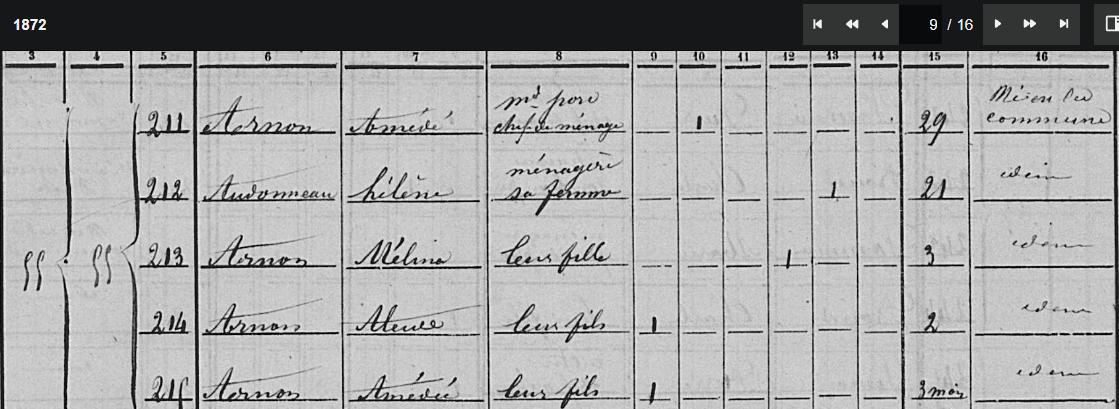 1872
9 / 16
3 4 5 6 7 8 9 10 11 12 13 14 15 16
md porc Né en la
211 Arnon Amédé chef de ménage 1 29 commune
ménagère
212 Audonneau hélène sa femme 1 21 idem
55 55 213 Arnon Mélina leur fille 1 3 idem
214 Arnon leur fils 1 2 idem
215 Arnon Amédé leur fils 1 3 mois idem